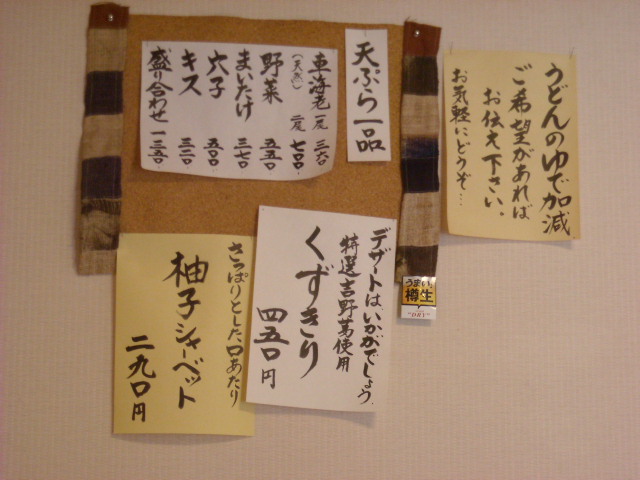 天ぷら一品
車海老 一尾 三六〇
(天然) 二尾 七〇〇
野菜 五五〇
まいたけ 三七〇
穴子 五〇〇
キス 三二〇
盛り合わせ 一三五〇
うどんのゆで加減
ご希望があれば
お伝え下さい。
お気軽にどうぞ…
デザートはいかがでしょう
特選吉野葛使用
くずきり
四五〇円
さっぱりとした口あたり
柚子シャーベット
二九〇円
うまい。
樽生
"DRY"